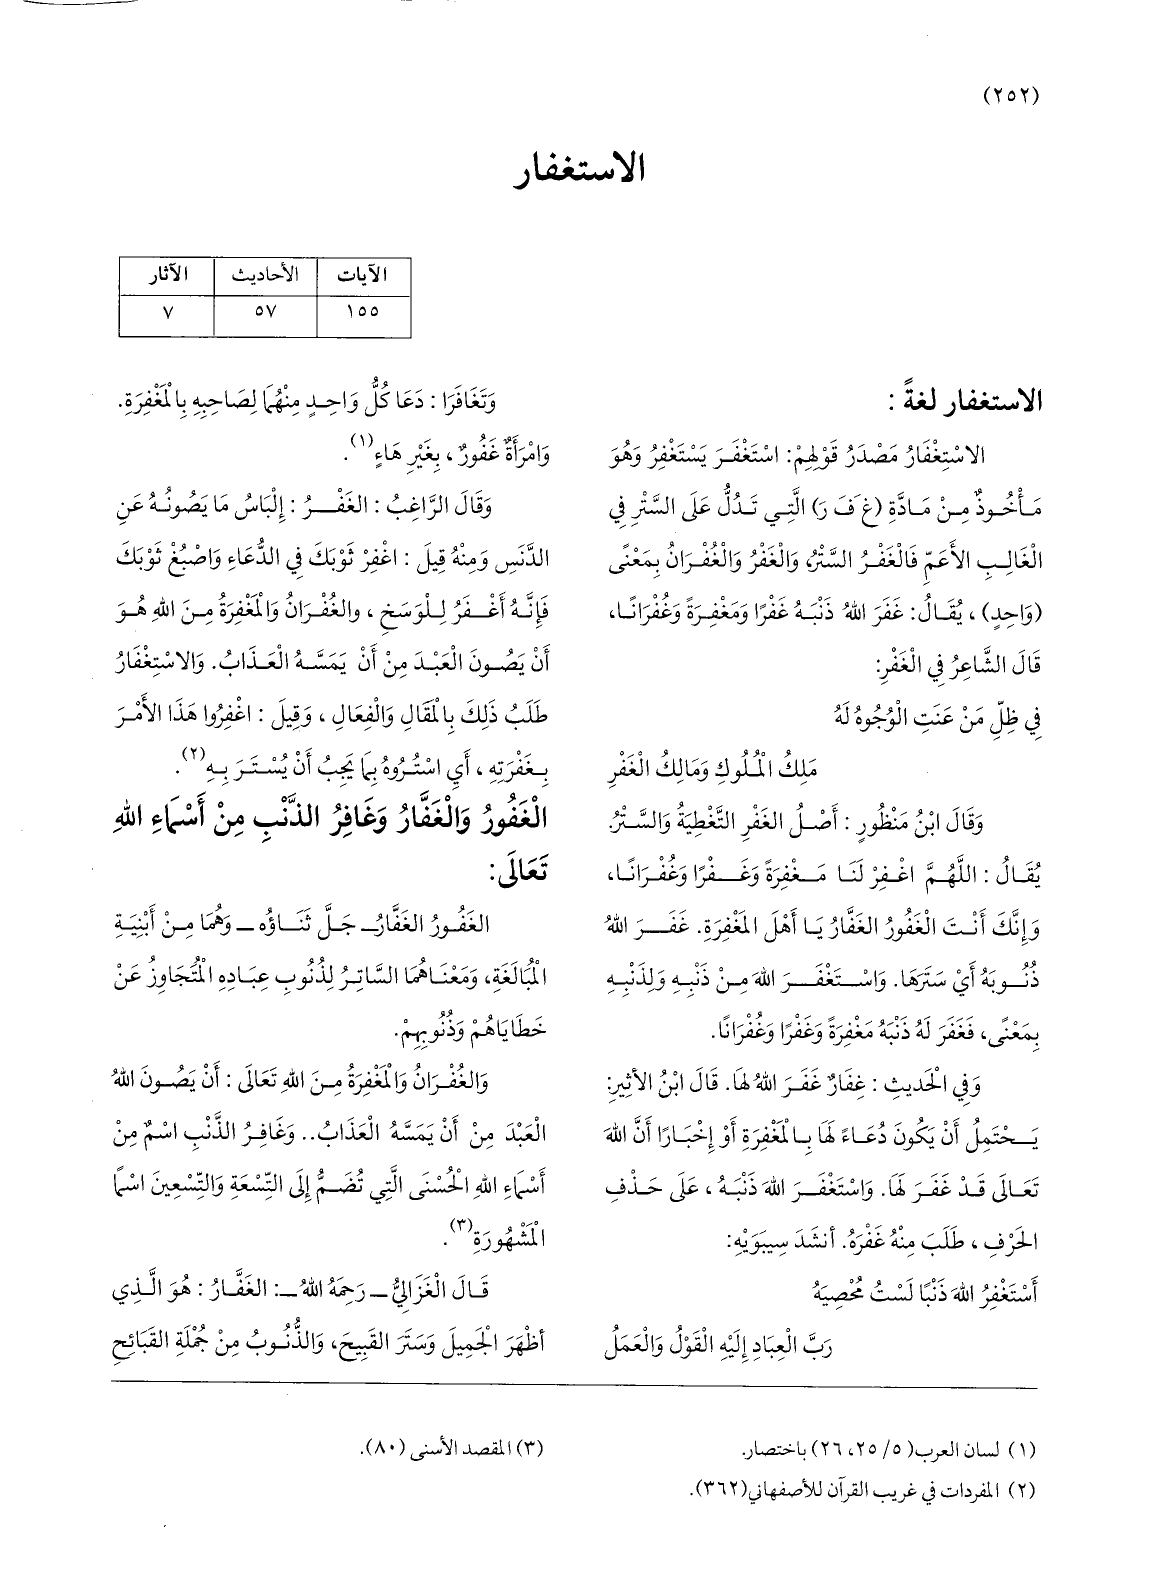 (٢٥٢)
الاستغفار
الآيات الأحاديث الآثار
١٥٥ ٥٧ ٧
الاستغفار لغةً :
الاسْتِغْفَارُ مَصْدَرُ قَوْلِهِمْ: اسْتَغْفَرَ يَسْتَغْفِرُ وَهُوَ
مَأْخُوذٌ مِنْ مَادَّةِ (غ َف َ رَ) الَّتِي تَدُلُّ عَلَى السَّتْرِ فِي
الْغَالِبِ الأَعَمِّ فَالْغَفْرُ السَّتْرُ، وَالْغَفْرُ وَالْغُفْرَانُ بِمَعْنًى
(وَاحِدٍ) ، يُقَالُ: غَفَرَ اللهُ ذَنْبَهُ غَفْرًا وَمَغْفِرَةً وَغُفْرَانًا،
قَالَ الشَّاعِرُ فِي الْغَفْرِ:
فِي ظِلِّ مَنْ عَنَتِ الْوُجُوهُ لَهُ
مَلِكُ الْمُلُوكِ وَمَالِكُ الْغَفْرِ
وَقَالَ ابْنُ مَنْظُورٍ : أَصْلُ الغَفْرِ التَّغْطِيَةُ وَالسَّتْرُ.
يُقَالُ : اللَّهُمَّ اغْفِرْ لَنَا مَغْفِرَةً وَغَفْرًا وَغُفْرَانًا،
وَإِنَّكَ أَنْتَ الْغَفُورُ الغَفَّارُ يَا أَهْلَ المَغْفِرَةِ. غَفَرَ اللهُ
ذُنُوبَهُ أَيْ سَتَرَهَا. وَاسْتَغْفَرَ اللهَ مِنْ ذَنْبِهِ وَلِذَنْبِهِ
بِمَعْنًى، فَغَفَرَ لَهُ ذَنْبَهُ مَغْفِرَةً وَغَفْرًا وَغُفْرَانًا.
وَفِي الْحَدِيثِ : غِفَارٌ غَفَرَ اللهُ لَهَا. قَالَ ابْنُ الأَثِيرِ:
يَحْتَمِلُ أَنْ يَكُونَ دُعَاءً لَهَا بِالْمَغْفِرَةِ أَوْ إِخْبَارًا أَنَّ اللهَ
تَعَالَى قَدْ غَفَرَ لَهَا. وَاسْتَغْفَرَ اللهَ ذَنْبَهُ ، عَلَى حَذْفِ
الحَرْفِ ، طَلَبَ مِنْهُ غَفْرَهُ. أَنْشَدَ سِيبَوَيْهِ:
أَسْتَغْفِرُ اللهَ ذَنْبًا لَسْتُ مُحْصِيَهُ
رَبَّ الْعِبَادِ إِلَيْهِ الْقَوْلُ وَالْعَمَلُ
وَتَغَافَرَا : دَعَا كُلُّ وَاحِدٍ مِنْهُمَا لِصَاحِبِهِ بِالْمَغْفِرَةِ.
وَامْرَأَةٌ غَفُورٌ ، بِغَيْرِ هَاءٍ(١).
وَقَالَ الرَّاغِبُ : الغَفْرُ : إِلْبَاسُ مَا يَصُونُهُ عَنِ
الدَّنَسِ وَمِنْهُ قِيلَ : اغْفِرْ ثَوْبَكَ فِي الدُّعَاءِ وَاصْبُغْ ثَوْبَكَ
فَإِنَّهُ أَغْفَرُ لِلْوَسَخِ ، والغُفْرَانُ وَالْمَغْفِرَةُ مِنَ اللهِ هُوَ
أَنْ يَصُونَ الْعَبْدَ مِنْ أَنْ يَمَسَّهُ الْعَذَابُ. وَالاسْتِغْفَارُ
طَلَبُ ذَلِكَ بِالْمَقَالِ وَالْفِعَالِ ، وَقِيلَ : اغْفِرُوا هَذَا الأَمْرَ
بِغَفْرَتِهِ ، أَيِ اسْتُرُوهُ بِمَا يَجِبُ أَنْ يُسْتَرَ بِهِ(٢).
الْغَفُورُ وَالْغَفَّارُ وَغَافِرُ الذَّنْبِ مِنْ أَسْمَاءِ اللهِ
تَعَالَى:
الغَفُورُ الغَفَّارُ ـ جَلَّ ثَنَاؤُه ـ وَهُمَا مِنْ أَبْنِيَةِ
الْمُبَالَغَةِ، وَمَعْنَاهُمَا السَّاتِرُ لِذُنُوبِ عِبَادِهِ الْمُتَجَاوِزُ عَنْ
خَطَايَاهُمْ وَذُنُوبِهِمْ.
وَالغُفْرَانُ وَالْمَغْفِرَةُ مِنَ اللهِ تَعَالَى : أَنْ يَصُونَ اللهُ
العَبْدَ مِنْ أَنْ يَمَسَّهُ الْعَذَابُ.. وَغَافِرُ الذَّنْبِ اسْمٌ مِنْ
أَسْمَاءِ اللهِ الْحُسْنَى الَّتِي تُضَمُّ إِلَى التِّسْعَةِ وَالتِّسْعِينَ اسْمًا
الْمَشْهُورَةِ(٣).
قَالَ الْغَزَالِيُّ ـ رَحِمَهُ اللهُ ـ: الغَفَّارُ : هُوَ الَّذِي
أَظْهَرَ الْجَمِيلَ وَسَتَرَ القَبِيحَ، وَالذُّنُوبُ مِنْ جُمْلَةِ القَبَائِحِ
(١) لسان العرب( ٥/ ٢٥، ٢٦) باختصار.
(٢) المفردات في غريب القرآن للأصفهاني(٣٦٢).
(٣) المقصد الأسنى (٨٠).